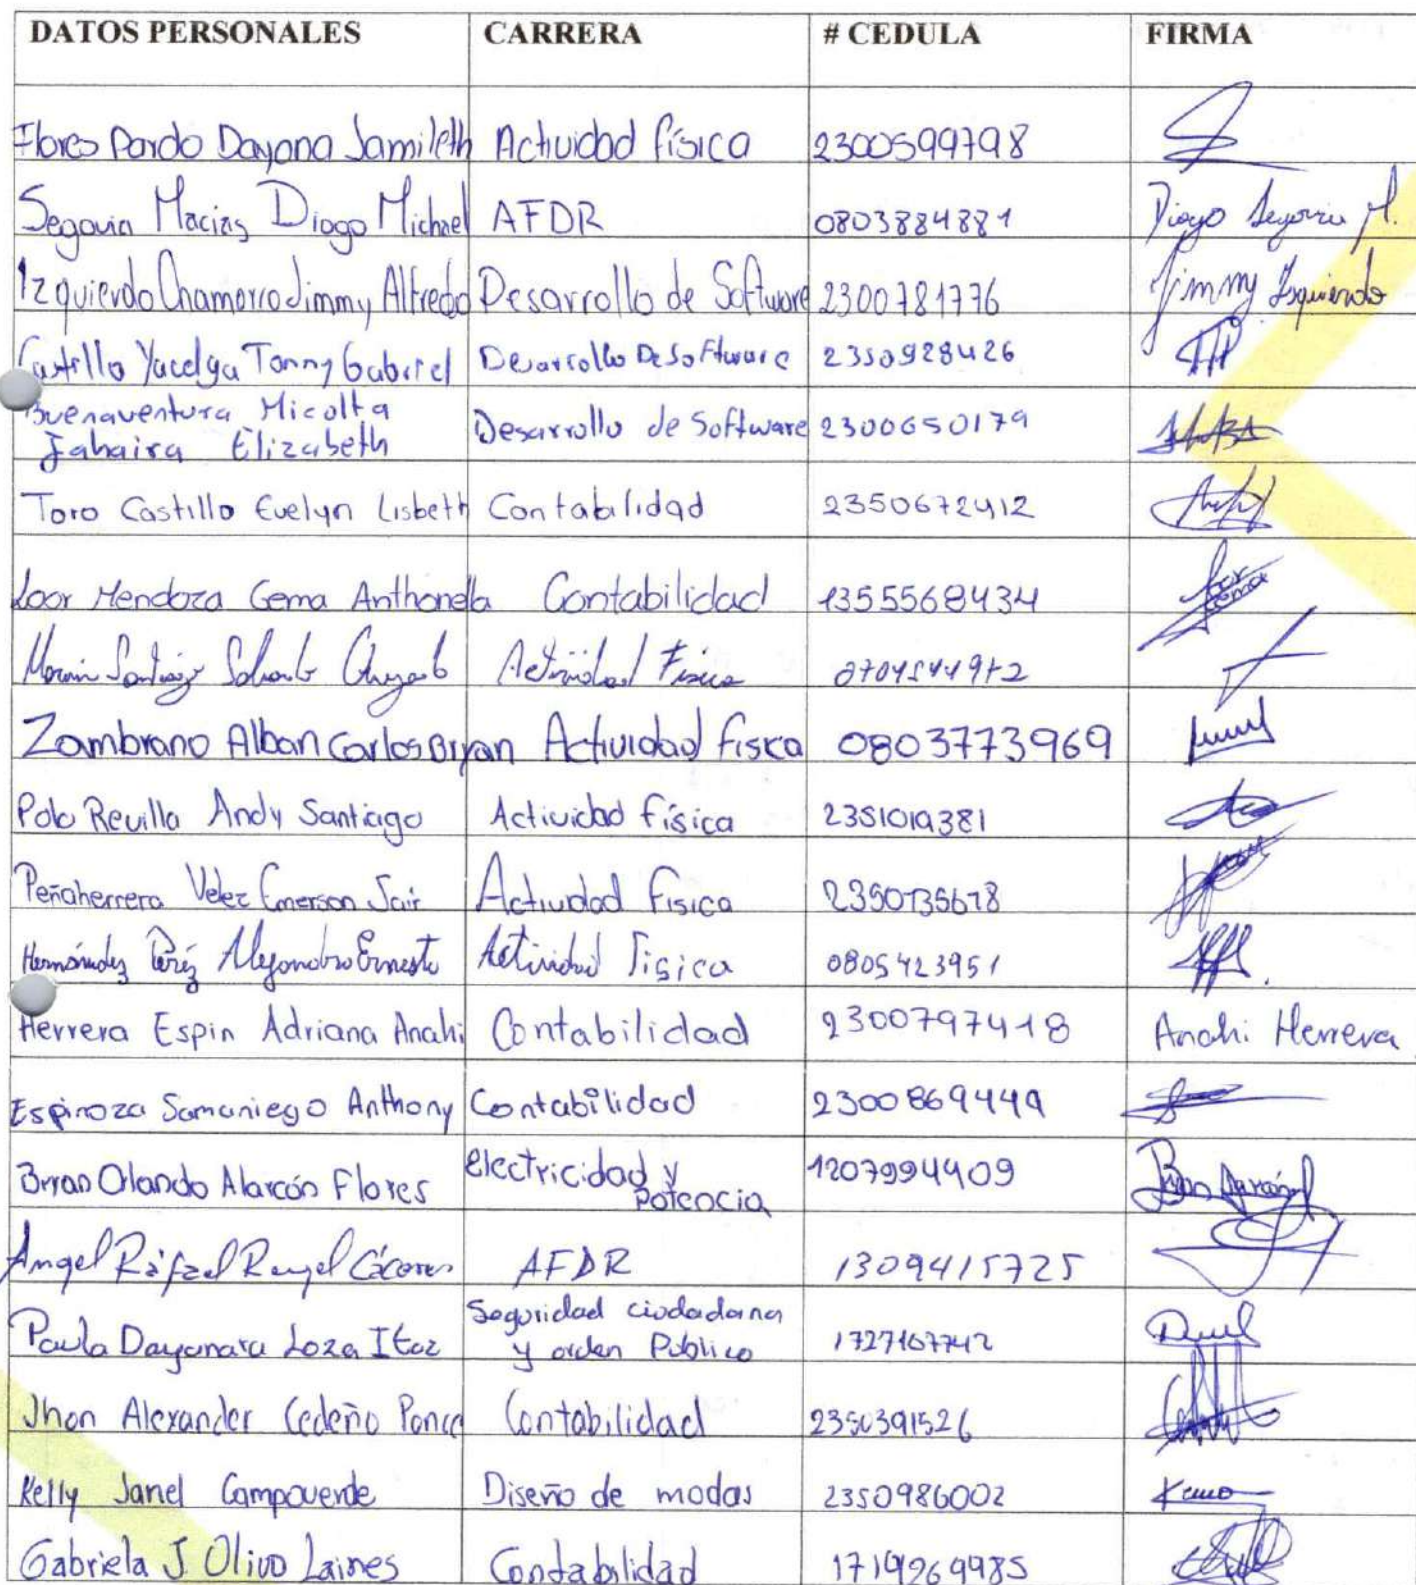 DATOS PERSONALES CARRERA # CEDULA FIRMA
Flores Pardo Dayana Jamileth Actividad física 2300599798
Segovia Macias Diogo Michael AFDR 0803884881 Diogo Segovia M.
Izquierdo Chamorro Jimmy Alfredo Desarrollo de Software 2300781776 Jimmy Izquierdo
Castillo Yacelga Tonny Gabriel Desarrollo De Software 2350928426
Buenaventura Micolta
Jahaira Elizabeth Desarrollo de Software 2300650179
Toro Castillo Evelyn Lisbeth Contabilidad 2350672412
Loor Mendoza Gema Anthonella Contabilidad 1355568434 Loor Gema
Actividad Física
Zambrano Alban Carlos Bryan Actividad fisica 0803773969
Polo Revilla Andy Santiago Actividad física 2351019381
Peñaherrera Velez Emerson Jair Actividad Fisica
Hernández Peréz Alejandro Ernesto Actividad Fisica 0805423951
Herrera Espin Adriana Anahi Contabilidad 2300797418 Anahi Herrera
Espinoza Samaniego Anthony Contabilidad 2300869449
Bryan Orlando Alarcón Flores electricidad y
Potencia 1207994409 Bryan Alarcón
Angel Ráfael Rangel Cáceres AFDR 1309415725
Paula Dayanara Loza Itaz Seguridad ciudadana
y orden Publico 1727167742
Jhon Alexander Cedeño Ponce Contabilidad 2350391526
Kelly Janel Campoverde Diseño de modas 2350986002
Gabriela J. Olivo Laines Contabilidad 1719269985